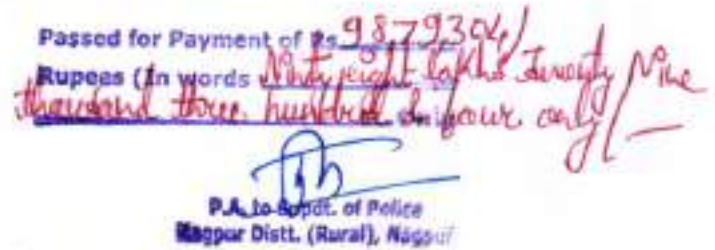 Passed for Payment of Rs 9879304/
Rupees (In words Ninty eight lakhs Seventy Nine
thousand three hundred & four only/-
P.A. to Supdt. of Police
Nagpur Distt. (Rural), Nagpur